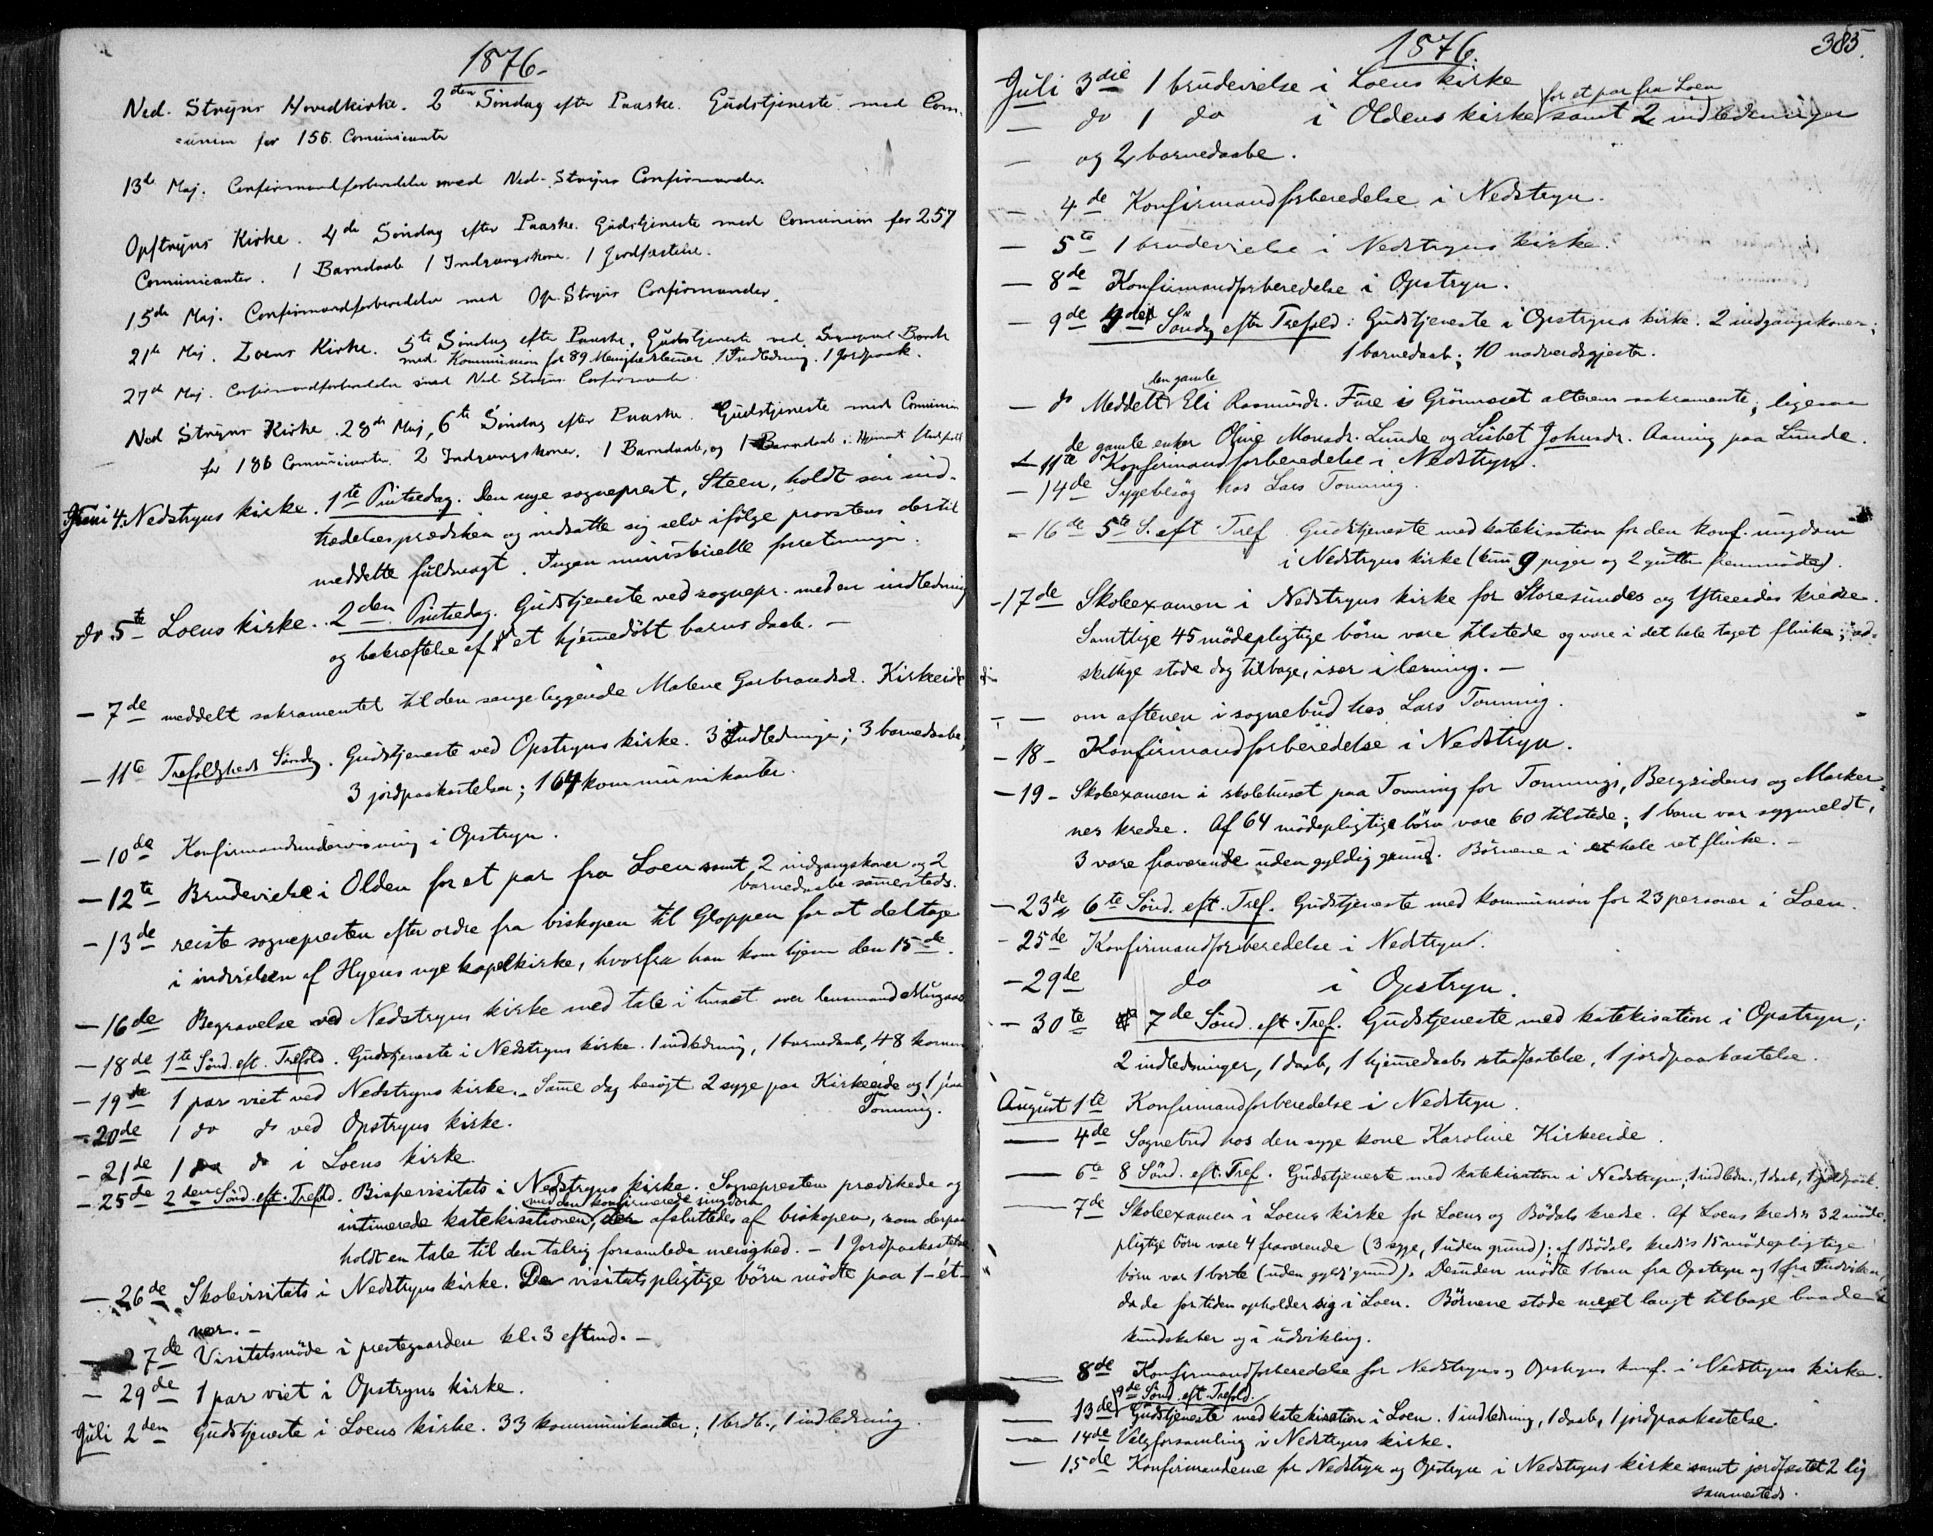 1876.
Ned. Stryns Hovedkirke. 2den Søndag efter Paaske. Gudstjeneste med Com-
=union for 156 Comunicanter
13de Maj. Confirmandforberedelse med Ned. Stryns Confirmander.
Opstryns Kirke. 4de Søndag efter Paaske. Gudstjeneste med Comunion for 257
Comunicanter. 1 Barndaab 1 Indgangskone. 1 Jordfæstelse.
15de Maj. Confirmandforberedelse med Op. Stryns Confirmander.
21de Maj. Loens Kirke. 5te Søndag efter Paaske. Gudstjeneste ved Sognepræst
med Kommunion for 89 Menighedslemer. 1 Indledning. 1 Jordpaak.
27de Maj. Confirmandforberedelse med Ned. Stryns Confirmander
Ned Stryns Kirke. 28de Maj, 6te Søndag efter Paaske. Gudstjeneste med Comunion
for 186 Comunicanter. 2 Indgangskoner. 1 Barndaab, og 1 Barndaab i Hjemmet stadfæstet
Juni 4. Nedstryns kirke. 1te Pintsedag. Den nye sogneprest, Steen, holdt sin ind-
trædelsesprædiken og indsatte sig selv ifölge provstens dertil
meddelte fuldmagt. Ingen ministerielle forretninger.
do 5te Loens kirke. 2den Pintsedag. Gudstjeneste ved sognepr. med en indledning
og bekræftelse af et hjemmedöbt barns daab. —
— 7de meddelt sakramentet til den sengeliggende Malene Garbrandsd. Kirkeeide
— 11te Trefoldigheds Sönd. Gudstjeneste ved Opstryns kirke. 3 Indledninger; 3 barnedaabe,
3 jordpaakastelser; 164 kommunikanter.
— 10de Konfirmandundervisning i Opstryn.
— 12te Brudevielse i Olden for et par fra Loen samt 2 indgangskoner og 2
barnedaabe sammesteds.
— 13de reiste sognepresten efter ordre fra biskopen til Gloppen for at deltage
i indvielsen af Hyens nye kapelkirke, hvorfra han kom hjem den 15de.
— 16de Begravelse ved Nedstryns kirke med tale i huset over lensmand
— 18de 1te Sönd. eft. Trefold. Gudstjeneste i Nedstryns kirke. 1 indledning, 1 barnedaab, 48 komm
— 19de 1 par viet ved Nedstryns kirke. — Same dag besögt 2 syge paa Kirkeeide og 1 paa
Tonning.
— 20de 1 do do ved Opstryns kirke.
— 21de 1 do do i Loens kirke.
— 25de 2den Sönd. eft. Trefold. Bispevisitats i Nedstryns kirke. Sognepresten prædikede og
med den konfirmerede ungdom
intimerede katekisationen, der afsluttedes af biskopen, som derpaa
holdt en tale til den talrig forsamlede menighed. — 1 Jordpaakastelse
— 26de Skolevisitats i Nedstryns kirke. De visitatspligtige börn mödte paa 1-et
nær. —
— 27de Visitatsmöde i prestegaarden kl. 3 eftmd. —
— 29de 1 par viet i Opstryns kirke.
Juli 2den Gudstjeneste i Loens kirke. 33 kommunikanter; 1 brdb., 1 indledning.
385.
1876.
Juli 3die 1 brudevielse i Loens kirke
for et par fra Loen
— do 1 do i Oldens kirke samt 2 indledninger
— og 2 barnedaabe.
— 4de Konfirmandforberedelse i Nedstryn.
— 5te 1 brudevielse i Nedstryns kirke.
— 8de Konfirmandforberedelse i Opstryn.
— 9de 4de Sönd. efter Trefold: Gudstjeneste i Opstryns kirke. 2 indgangskoner;
1 barnedaab; 10 nadverdsgjester.
den gamle
— do Meddelt Eli Rasmusdr. Fure i Grönnæset alterens sakramente, ligesaa
de gamle enker Oline Monsdr. Lunde og Lisbet Johnsdr. Aaning paa Lunde.
— 11te Konfirmandforberedelse i Nedstryn.
— 14de Sygebesög hos Lars Tonning.
— 16de 5te S. eft. Tref Gudstjeneste med katekisation for den konf. ungdom
i Nedstryns kirke (kun 9 piger og 2 gutter fremmödte).
— 17de Skoleexamen i Nedstryns kirke for Storesundes og Ytreeides kredse.
Samtlige 45 mödepligtige börn vare tilstede og vare i det hele taget flinke; ad-
skillige stode dog tilbage, især i læsning. —
— — om aftenen i sognebud hos Lars Tonning.
— 18 — Konfirmandforberedelse i Nedstryn.
— 19 — Skoleexamen i skolehuset paa Tonning for Tonnings, Bergsidens og Marke-
nes kredse. Af 64 mödepligtige börn vare 60 tilstede; 1 barn var sygmeldt,
3 vare fraværende uden gyldig grund. Börnene i det hele ret flinke. —
— 23de 6te Sönd. eft. Tref. Gudstjeneste med kommunion for 23 personer i Loen.
— 25de Konfirmandforberedelse i Nedstryn.
— 29de do i Opstryn.
— 30te 7de Sönd. eft. Tref. Gudstjeneste med katekisation i Opstryn;
2 indledninger, 1 daab, 1 hjemmedaabs stadfæstelse, 1 jordpaakastelse.
August 1te Konfirmandforberedelse i Nedstryn.
— 4de Sognebud hos den syge kone Karoline Kirkeeide.
— 6te 8 Sönd. eft. Tref. Gudstjeneste med katekisation i Nedstryn; 1 indledn., 1 daab, 1 jordpaak.
— 7de Skoleexamen i Loens kirke for Loens og Bödals kredse. Af Loens kreds's 32 möde-
pligtige börn vare 4 fraværende (3 syge, 1 uden grund); af Bödals kreds's 15 mödepligtige
börn var 1 borte (uden gyldig grund). Desuden mödte 1 barn fra Opstryn og 1 fra Indviken,
da de for tiden opholder sig i Loen. Börnene stode meget langt tilbage baade i
kundskaber og i udvikling.
— 8de Konfirmandforberedelse for Nedstryns og Opstryns konf. i Nedstryns kirke.
9de Sönd. eft. Trefold.
— 13de Gudstjeneste med katekisation i Loen. 1 indledning, 1 daab, 1 jordpaakastelse.
— 14de Valgforsamling i Nedstryns kirke.
— 15de Konfirmanderne for Nedstryn og Opstryn i Nedstryns kirke samt jordfæstet 2 lig
sammesteds.